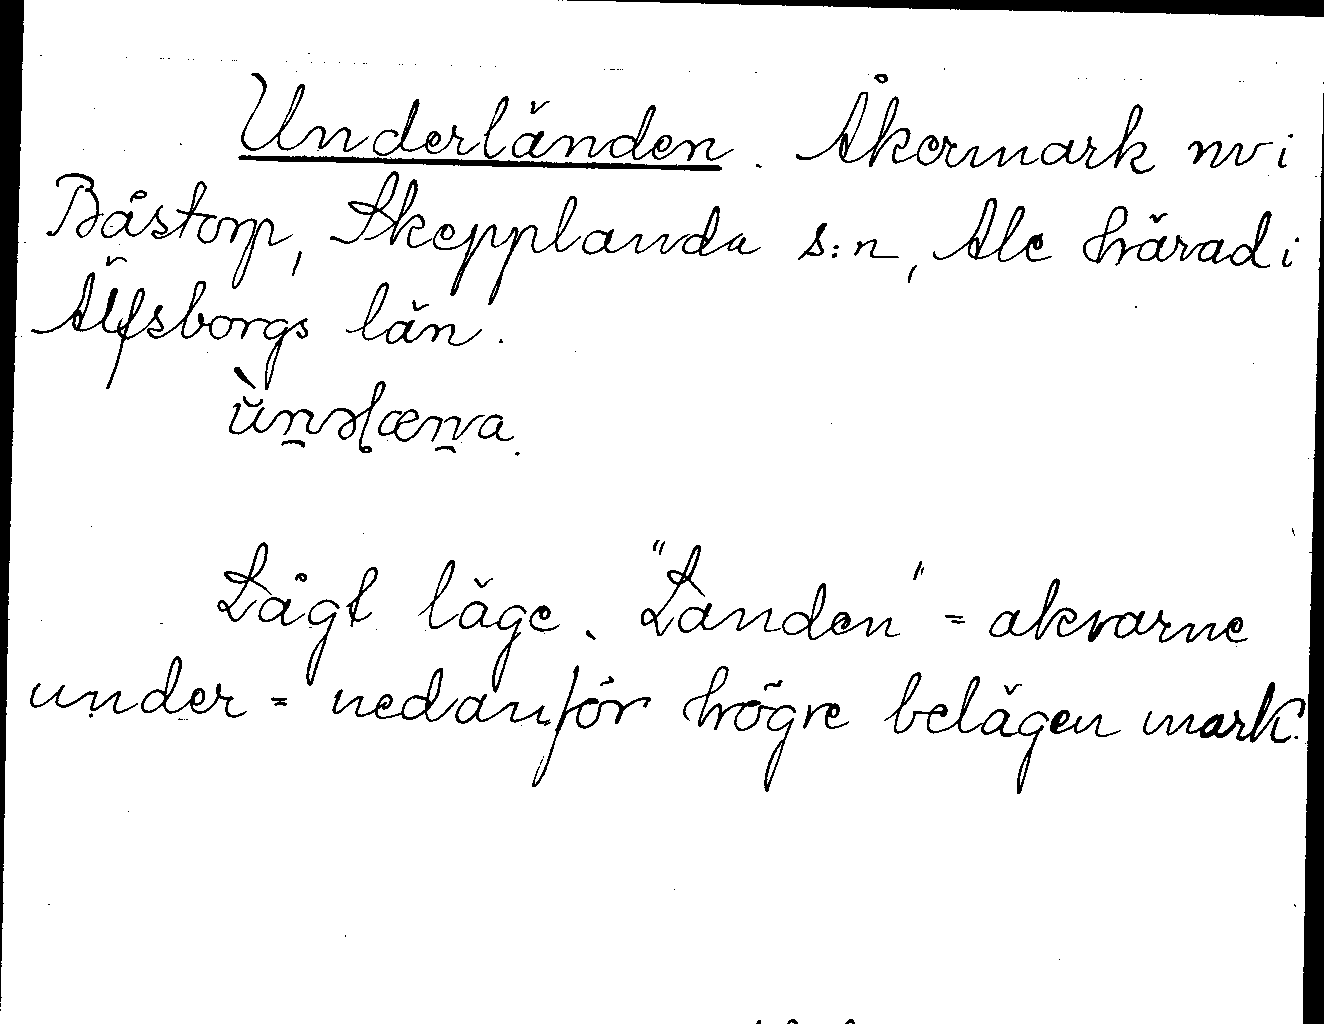 Underländen. Åkermark nv i
Båstorp, Skepplanda s:n, Ale härad i
Älfsborgs län.
Lågt läge. "Landen" = akrarne
under = nedanför högre belägen mark.